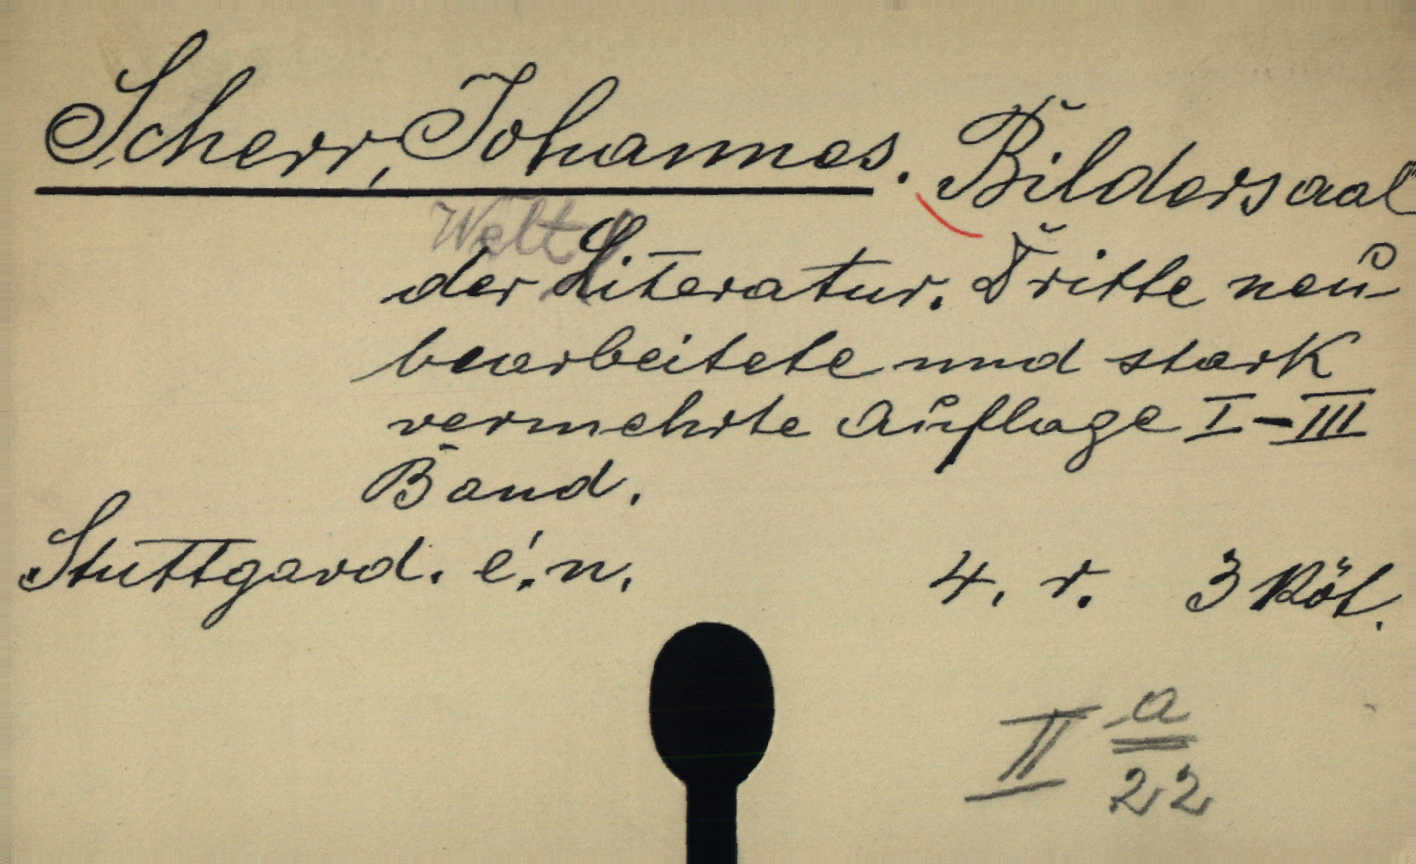 Scherr, Johannes. Bildersaal
Weltl
der Literatur. Dritte neu
bearbeitete und stark
vermehrte Auflage I-III
Band.
Stuttgard. é.n. 4. r. 3 Köt.
II a/22